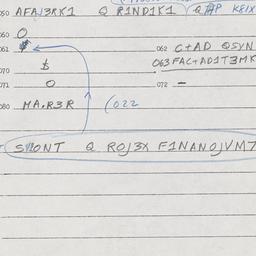 050 AFAJ3RK1 Q R1ND1K1 KEIX
060 O
061 $ 062 C+AD QSYN
063 FAC+AD1T3MK
070 $
071 O 072 —
080 MA.R3R (022
Q ROJ3X F1NANOJVM7